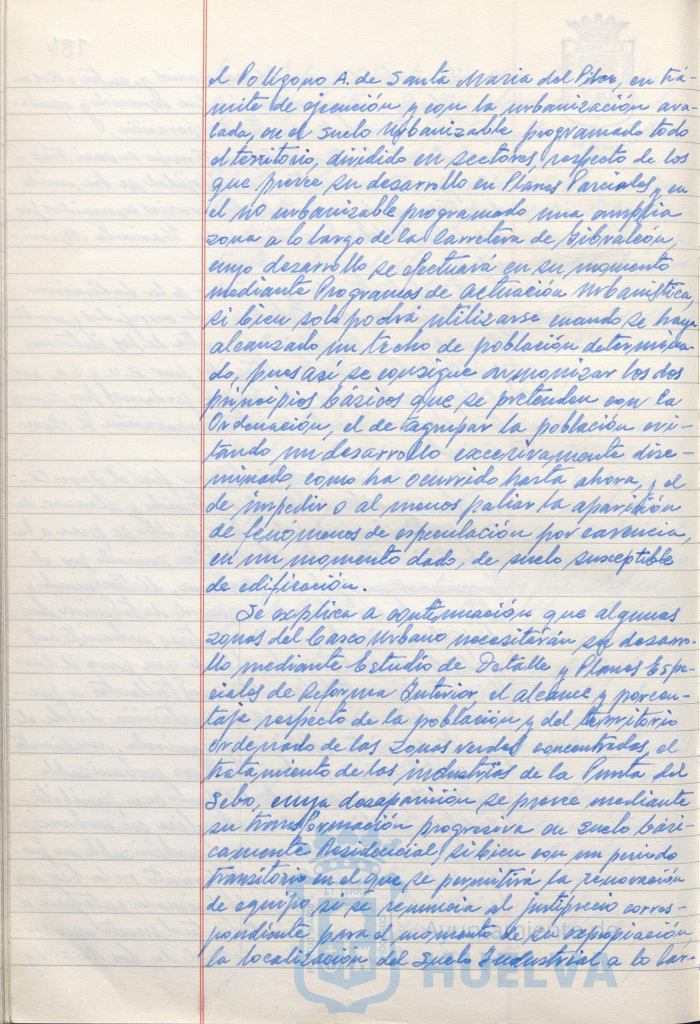 el Polígono A. de Santa Maria del Pilar, en trá-
mite de ejecución y con la urbanización ava-
lada, en el Suelo Urbanizable programado todo
el territorio, dividido en sectores, respecto de los
que preveé su desarrollo en Planes Parciales y en
el no urbanizable programado una amplia
zona a lo largo de la Carretera de Gibraleón,
cuyo desarrollo se efectuará en su momento
mediante Programas de Actuación Urbanística,
si bien solo podrá utilizarse cuando se haya
alcanzado un techo de población determina-
do, pues así se consigue armonizar los dos
principios básicos que se pretenden con la
Ordenación, el de agrupar la población evi-
tando un desarrollo excesivamente dise-
minado, como ha ocurrido hasta ahora, y el
de impedir o al menos paliar la aparición
de fenómenos de especulación por carencia,
en un momento dado, de suelo susceptible
de edificación.
Se explica a continuación que algunas
zonas del Casco Urbano necesitarán su desarro-
llo mediante Estudio de Detalle y Planes Espe-
ciales de Reforma Interior el alcance y porcen-
taje respecto de la población y del territorio
ordenado de las zonas verdes concentradas, el
tratamiento de las industrias de la Punta del
Sebo, cuya desaparición se preveé mediante
su transformación progresiva en Suelo bási-
camente Residencial, si bien con un periodo
transitorio en el que se permitirá la renovación
de equipo, si se renuncia al justiprecio corres-
pondiente para el momento de su expropiación,
la localización del Suelo Industrial a lo lar-
Ayuntamiento de
HUELVA